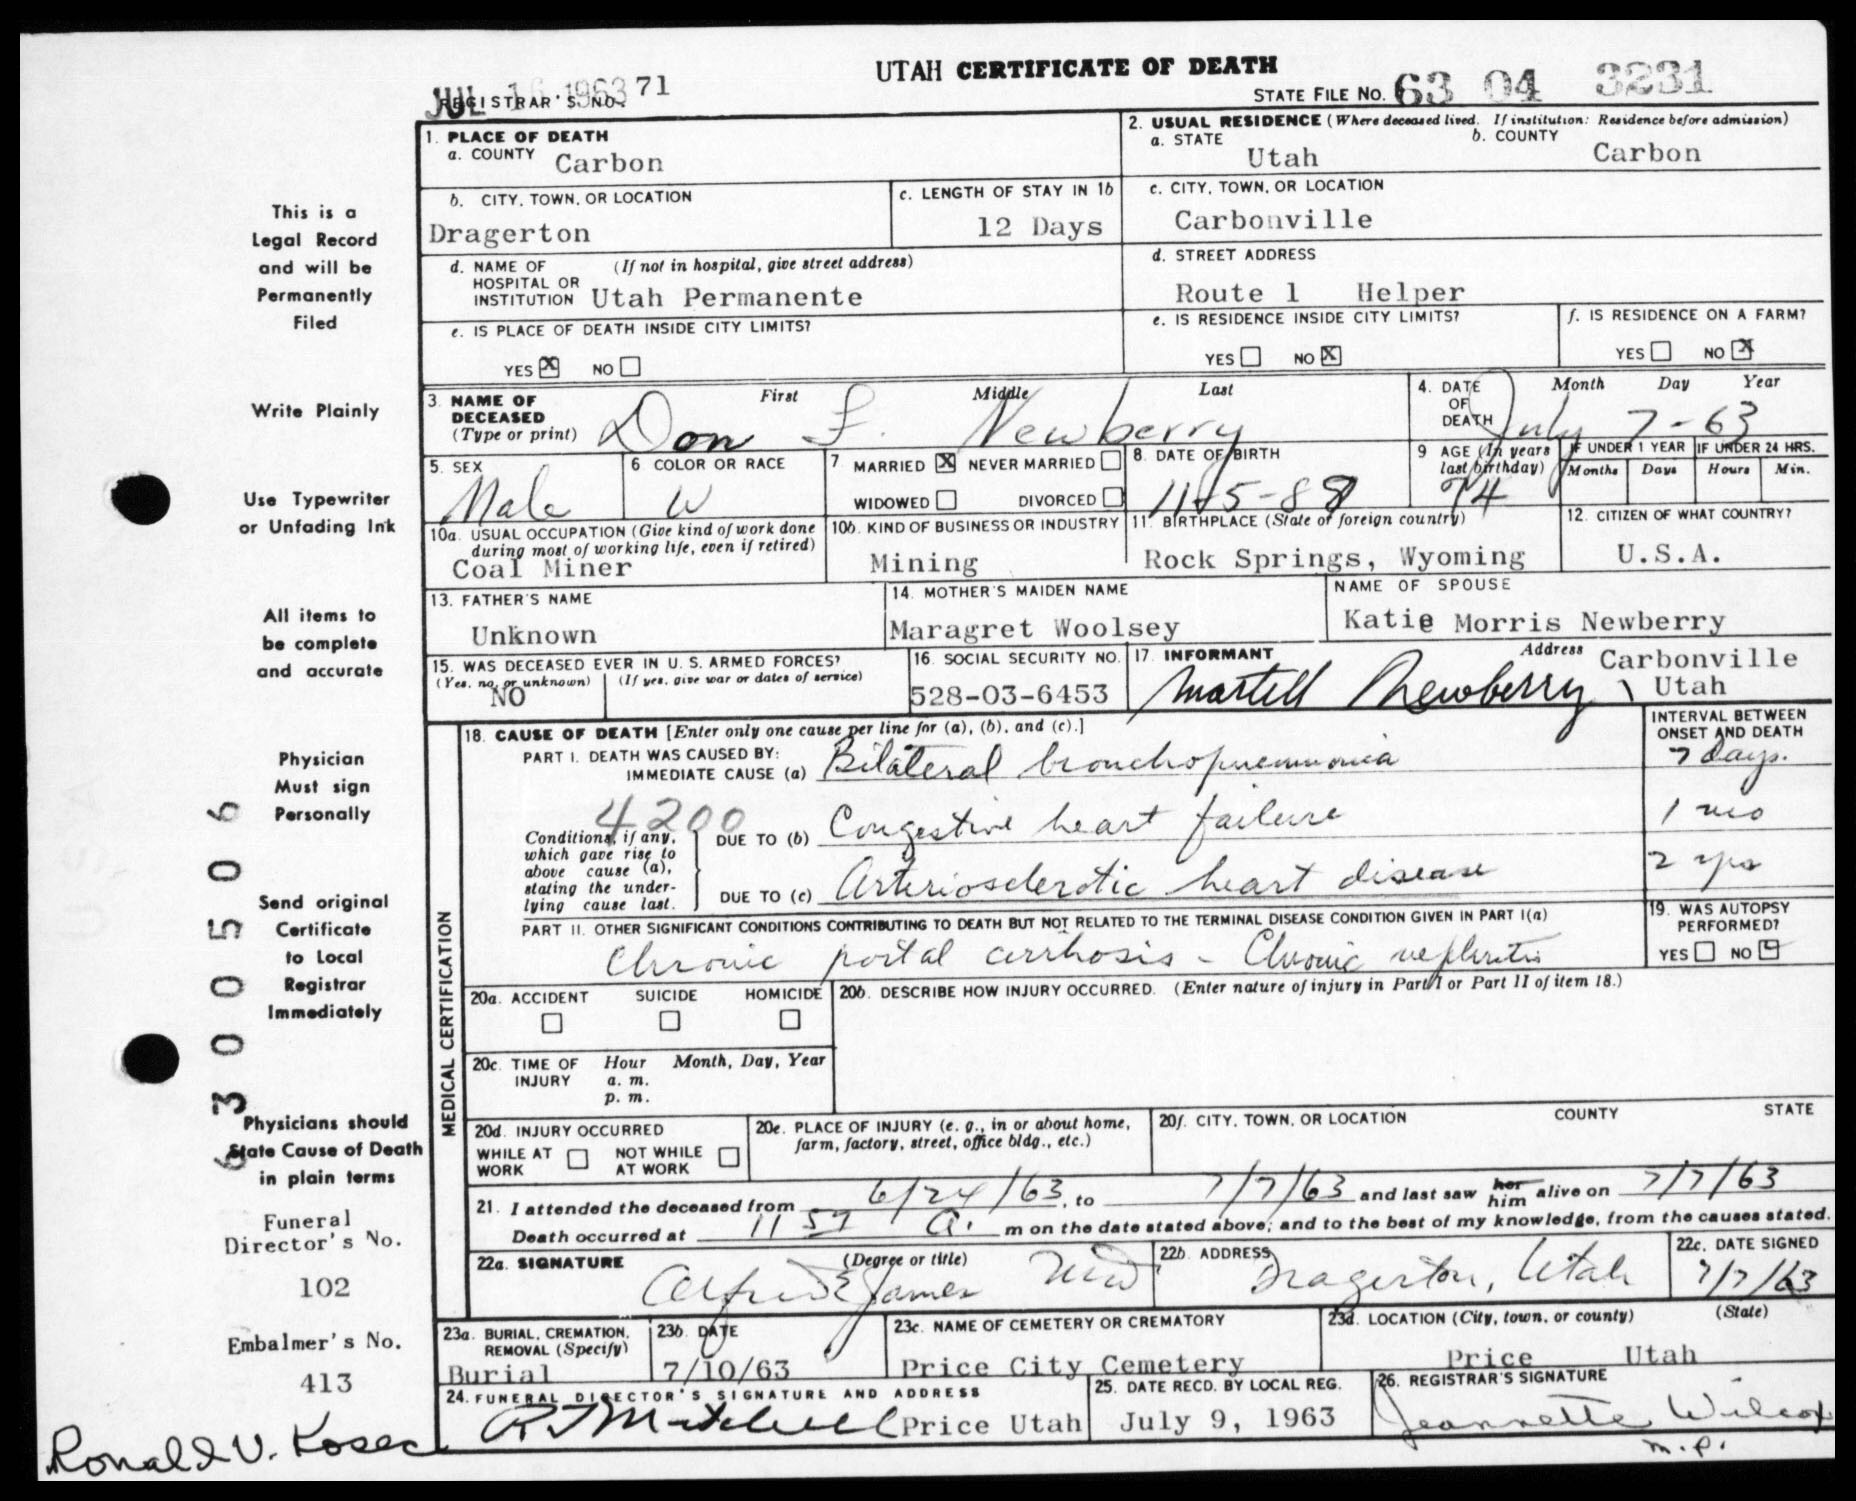 UTAH CERTIFICATE OF DEATH
JUL 16 1963 71
REGISTRAR'S NO.
STATE FILE NO. 63 04 3231
1. PLACE OF DEATH
a. COUNTY Carbon
2. USUAL RESIDENCE (Where deceased lived. If institution: Residence before admission)
a. STATE Utah
b. COUNTY Carbon
b. CITY, TOWN, OR LOCATION
Dragerton
c. LENGTH OF STAY IN 1b
12 Days
c. CITY, TOWN, OR LOCATION
Carbonville
d. NAME OF HOSPITAL OR INSTITUTION (If not in hospital, give street address)
Utah Permanente
d. STREET ADDRESS
Route 1 Helper
e. IS PLACE OF DEATH INSIDE CITY LIMITS?
YES X NO
e. IS RESIDENCE INSIDE CITY LIMITS?
YES NO X
f. IS RESIDENCE ON A FARM?
YES NO X
3. NAME OF DECEASED (Type or print)
First Middle Last
Don F. Newberry
4. DATE OF DEATH
Month Day Year
July 7-63
5. SEX
Male
6 COLOR OR RACE
W
7 MARRIED X NEVER MARRIED
WIDOWED DIVORCED
8. DATE OF BIRTH
11-5-88
9 AGE (In years last birthday)
74
IF UNDER 1 YEAR
Months Days
IF UNDER 24 HRS.
Hours Min.
10a. USUAL OCCUPATION (Give kind of work done during most of working life, even if retired)
Coal Miner
10b. KIND OF BUSINESS OR INDUSTRY
Mining
11. BIRTHPLACE (State or foreign country)
Rock Springs, Wyoming
12. CITIZEN OF WHAT COUNTRY?
U.S.A.
13. FATHER'S NAME
Unknown
14. MOTHER'S MAIDEN NAME
Maragret Woolsey
NAME OF SPOUSE
Katie Morris Newberry
15. WAS DECEASED EVER IN U. S. ARMED FORCES?
(Yes, no, or unknown) (If yes, give war or dates of service)
NO
16. SOCIAL SECURITY NO.
528-03-6453
17. INFORMANT Address
Martell Newberry, Carbonville
Utah
MEDICAL CERTIFICATION
18. CAUSE OF DEATH [Enter only one cause per line for (a), (b), and (c).]
INTERVAL BETWEEN ONSET AND DEATH
PART I. DEATH WAS CAUSED BY:
IMMEDIATE CAUSE (a) Bilateral bronchopneumonia 7 days.
4200
Conditions, if any, which gave rise to above cause (a), stating the underlying cause last.
DUE TO (b) Congestive heart failure 1 mo
DUE TO (c) Arteriosclerotic heart disease 2 yrs
PART II. OTHER SIGNIFICANT CONDITIONS CONTRIBUTING TO DEATH BUT NOT RELATED TO THE TERMINAL DISEASE CONDITION GIVEN IN PART I(a)
Chronic portal cirrhosis - Chronic nephritis
19. WAS AUTOPSY PERFORMED?
YES NO
20a. ACCIDENT SUICIDE HOMICIDE
20b. DESCRIBE HOW INJURY OCCURRED. (Enter nature of injury in Part I or Part II of item 18.)
20c. TIME OF INJURY Hour Month, Day, Year
a. m.
p. m.
20d. INJURY OCCURRED
WHILE AT WORK NOT WHILE AT WORK
20e. PLACE OF INJURY (e. g., in or about home, farm, factory, street, office bldg., etc.)
20f. CITY, TOWN, OR LOCATION COUNTY STATE
21. I attended the deceased from 6/24/63, to 7/7/63 and last saw her him alive on 7/7/63
Death occurred at 11 57 a. m on the date stated above; and to the best of my knowledge, from the causes stated.
22a. SIGNATURE (Degree or title)
Alfred E James MD
22b. ADDRESS
Dragerton, Utah
22c. DATE SIGNED
7/7/63
23a. BURIAL, CREMATION, REMOVAL (Specify)
Burial
23b. DATE
7/10/63
23c. NAME OF CEMETERY OR CREMATORY
Price City Cemetery
23d. LOCATION (City, town, or county) (State)
Price Utah
24. FUNERAL DIRECTOR'S SIGNATURE AND ADDRESS
R J Mitchell Price Utah
25. DATE RECD. BY LOCAL REG.
July 9, 1963
26. REGISTRAR'S SIGNATURE
Jeannette Wilcox
m.p.
This is a
Legal Record
and will be
Permanently
Filed
Write Plainly
Use Typewriter
or Unfading Ink
All items to
be complete
and accurate
Physician
Must sign
Personally
Send original
Certificate
to Local
Registrar
Immediately
Physicians should
State Cause of Death
in plain terms
6 3 0 0 5 0 6
Funeral
Director's No.
102
Embalmer's No.
413
Ronald V. Kosec